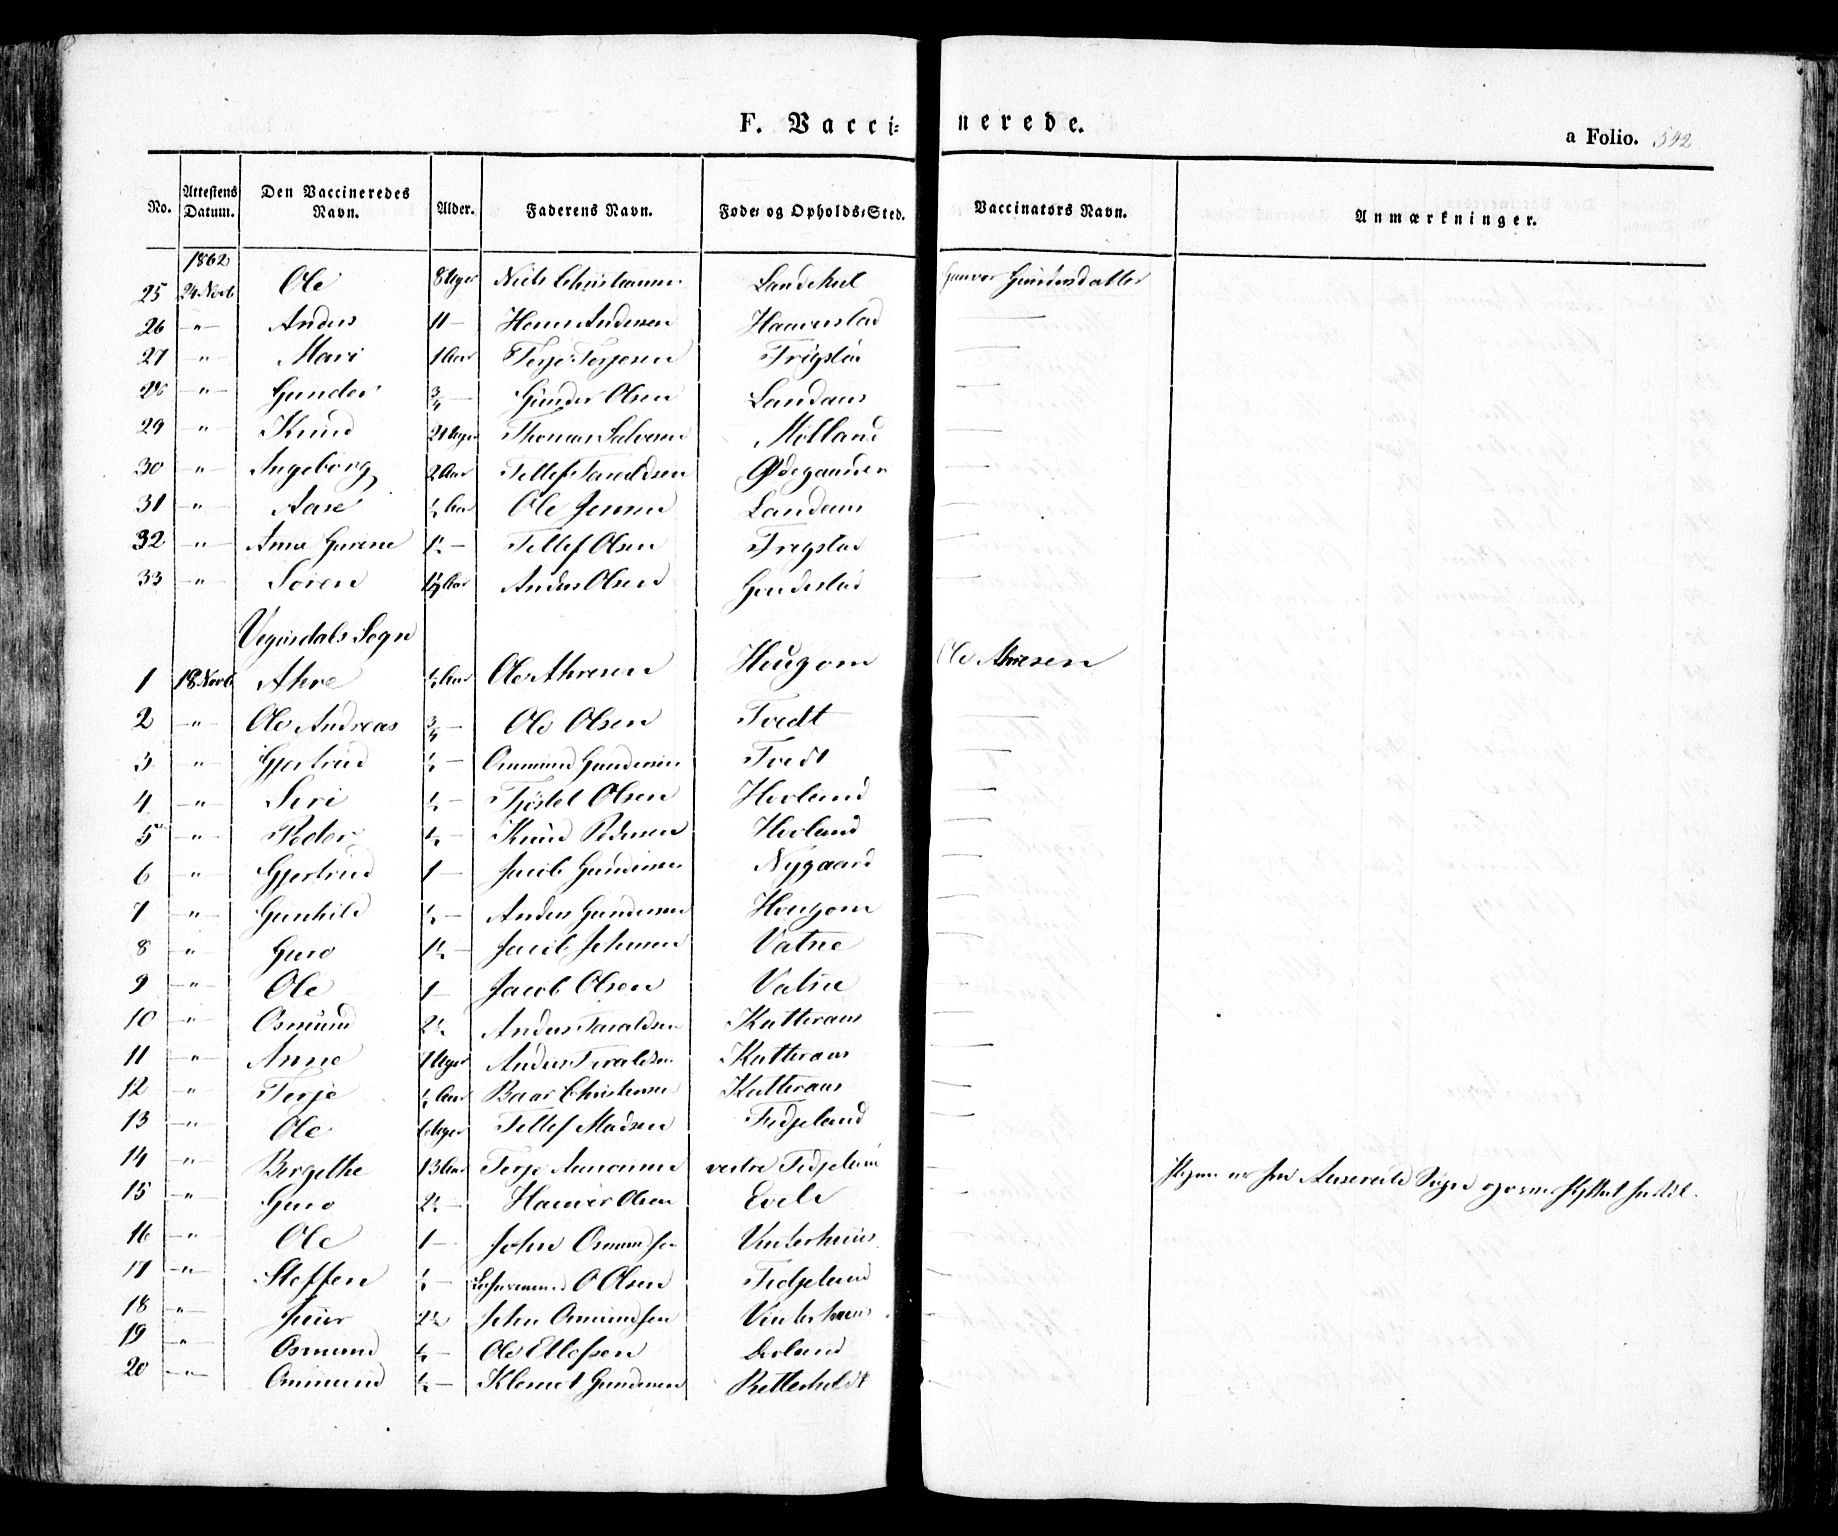 F. Vaccinerede.
a Folio. 342
No. Attestens Datum. Den Vaccineredes Navn. Alder. Faderens Navn. Føde- og Opholds-Sted. Vaccinators Navn. Anmærkninger.
1862
25 24 Novb Ole 8 Uger Niels Christiansen Gunvor Gundersdatter
26 " Anders 11 — Andersen Haaverstad —
27 " Mari 1 Aar Terje Terjesen Trigstad —
28 " Gunder 3/4 — Gunder Olsen Landaas —
29 " Knud 21 Uger Thomas Salvesen Mölland —
30 " Ingeborg 2 Aar Tellef Taraldsen Ødegaarden —
31 " Aase ½ Aar Ole Jensen Landaas —
32 " Anne Gurine 1½ — Tellef Olsen Tregstad —
33 " Sören 1½ Aar Anders Olsen —
Vegusdals Sogn
1 18 Novb Ahre ½ Aar Ole Ahresen Haugom Ole Ahresen
2 " Ole Andreas 3/4 — Ole Olsen Tvedt —
3 " Gjertrud ½ — Ommund Gundersen Tvedt —
4 " Siri ½ — Tjöstel Olsen Hovland —
5 " Peder ½ — Knud Pedersen Hovland —
6 " Gjertrud 1 — Jacob Gundersen Nygaard —
7 " Gunhild ½ — Anders Gundersen Hougom —
8 " Guro 1½ — Jacob Johnsen Vatne —
9 " Ole 1 — Jacob Olsen Vatne —
10 " Osmund 2½ Anders Taraldsen Katteraas —
11 " Anne Uger Anders Taraldsen Katteraas —
12 " Terje ½ Aar Baar Christensen Katteraas —
13 " Ole 6 Uger Tellef Madsen Fidjeland —
14 " Birgithe 13 Aar Terje vestre Fidjeland —
15 " Guro 2½ — Olsen —
16 " Ole 1 — John Osmundsen Vinterhuus —
17 " Steffen ½ — O Olsen Fidjeland —
18 " 2½ John Osmundsen Vinterhuus —
19 " Osmund ½ — Ole Ellefsen —
20 " Ommund ½ — Klemet Gundersen —